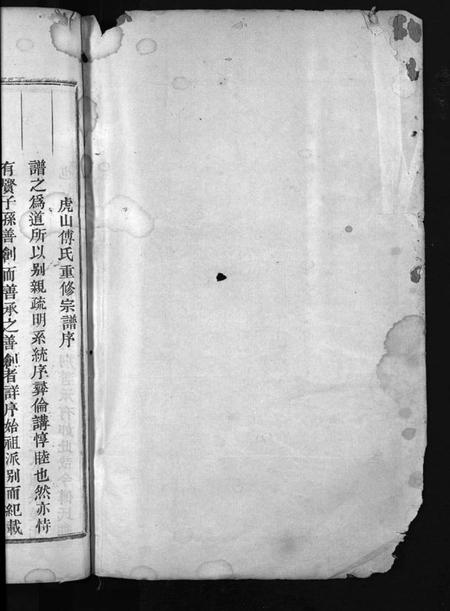 虎山傅氏重修宗譜序
譜之爲道所以别親疏明系統序彛倫講惇睦也然亦恃
有賢子孫善創而善承之善創者詳序始祖派别而紀載